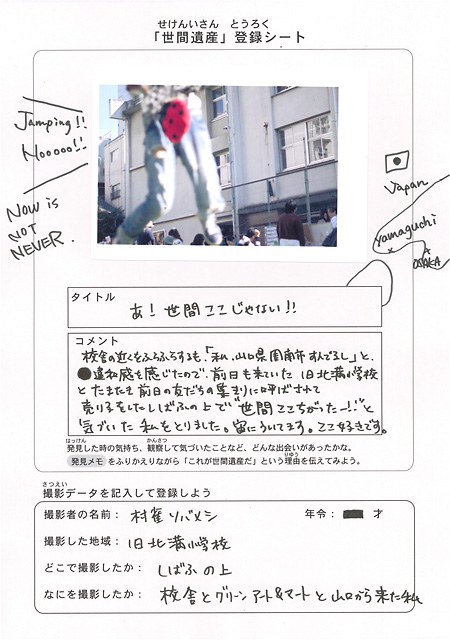 せけんいさん とうろく
「世間遺産」登録シート
Jamping!!
Nooooo!!
NOW is
NOT
NEVER.
Japan
Yamaguchi
OSAKA
タイトル
あ！世間ここじゃない!!
コメント
校舎の近くをふらふらするも、「私、山口県周南市すんでるし」と、
違和感を感じたので、前日も来ていた旧北溝小学校
とたまたま前日の友だちの集まりに呼ばされて
売り子をしたしばふの上で"世間ここちがったー!!"と
気づいた私をとりました。宙にういてます。ここ好きです。
はっけん かんさつ
発見した時の気持ち、観察して気づいたことなど、どんな出会いがあったかな。
りゆう
発見メモをふりかえりながら「これが世間遺産だ」という理由を伝えてみよう。
さつえい
撮影データを記入して登録しよう
撮影者の名前： 村雀ソバメシ 年令： 才
撮影した地域： 旧北溝小学校
どこで撮影したか： しばふの上
なにを撮影したか： 校舎とグリーンアート&マートと山口から来た私